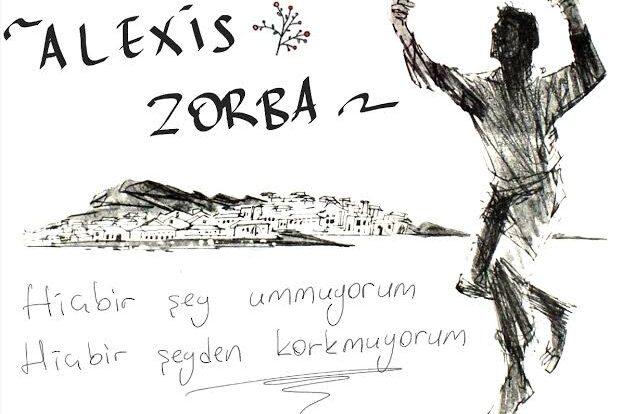 ~ALEXİS
ZORBA~
Hiçbir şey ummuyorum
Hiçbir şeyden korkmuyorum